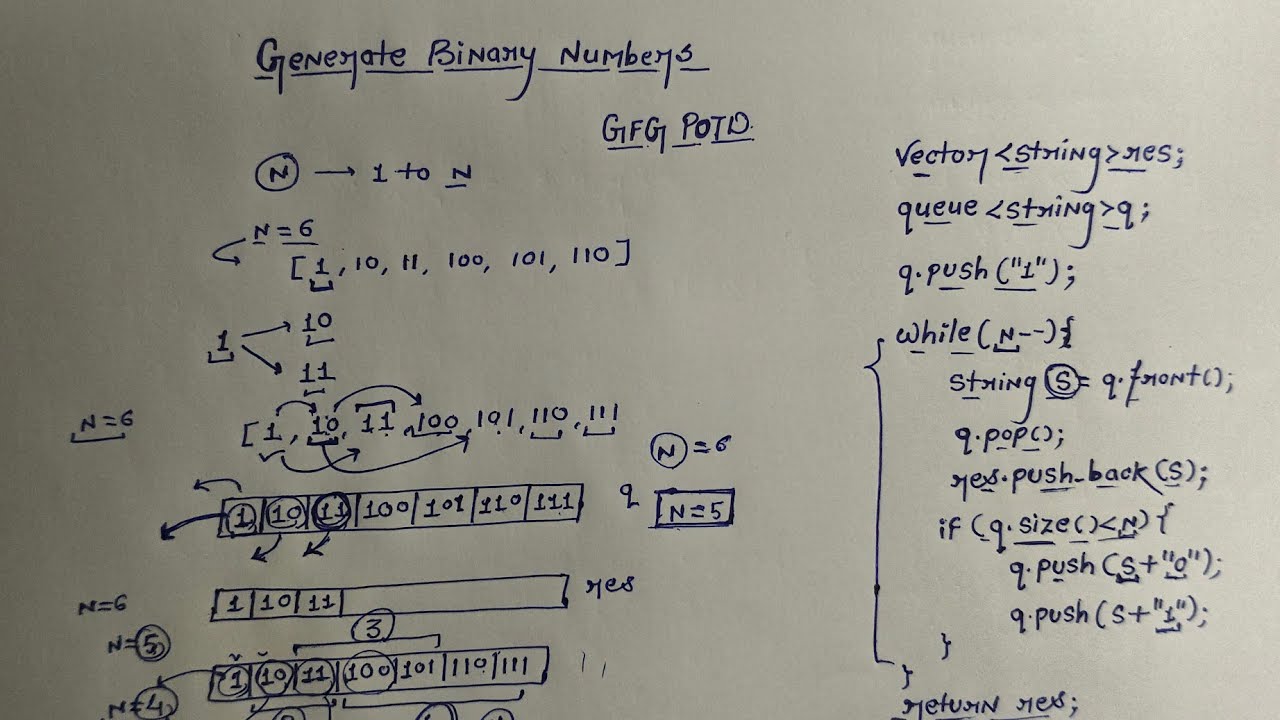 Generate Binary Numbers
GFG POTD.
N → 1 to N
N=6
[1, 10, 11, 100, 101, 110]
1 → 10
→ 11
N=6
[1, 10, 11, 100, 101, 110, 111
N=6
1 10 11 100 101 110 111 q
N=5
1 10 11 res
N=6
3
N=5
1 10 11 100 101 110 111
N=4
vector<string>res;
queue<string>q;
q.push("1");
while(N--){
string s= q.front();
q.pop();
res.push_back(s);
if (q.size()<N){
q.push(s+"0");
q.push(s+"1");
}
}
return res;